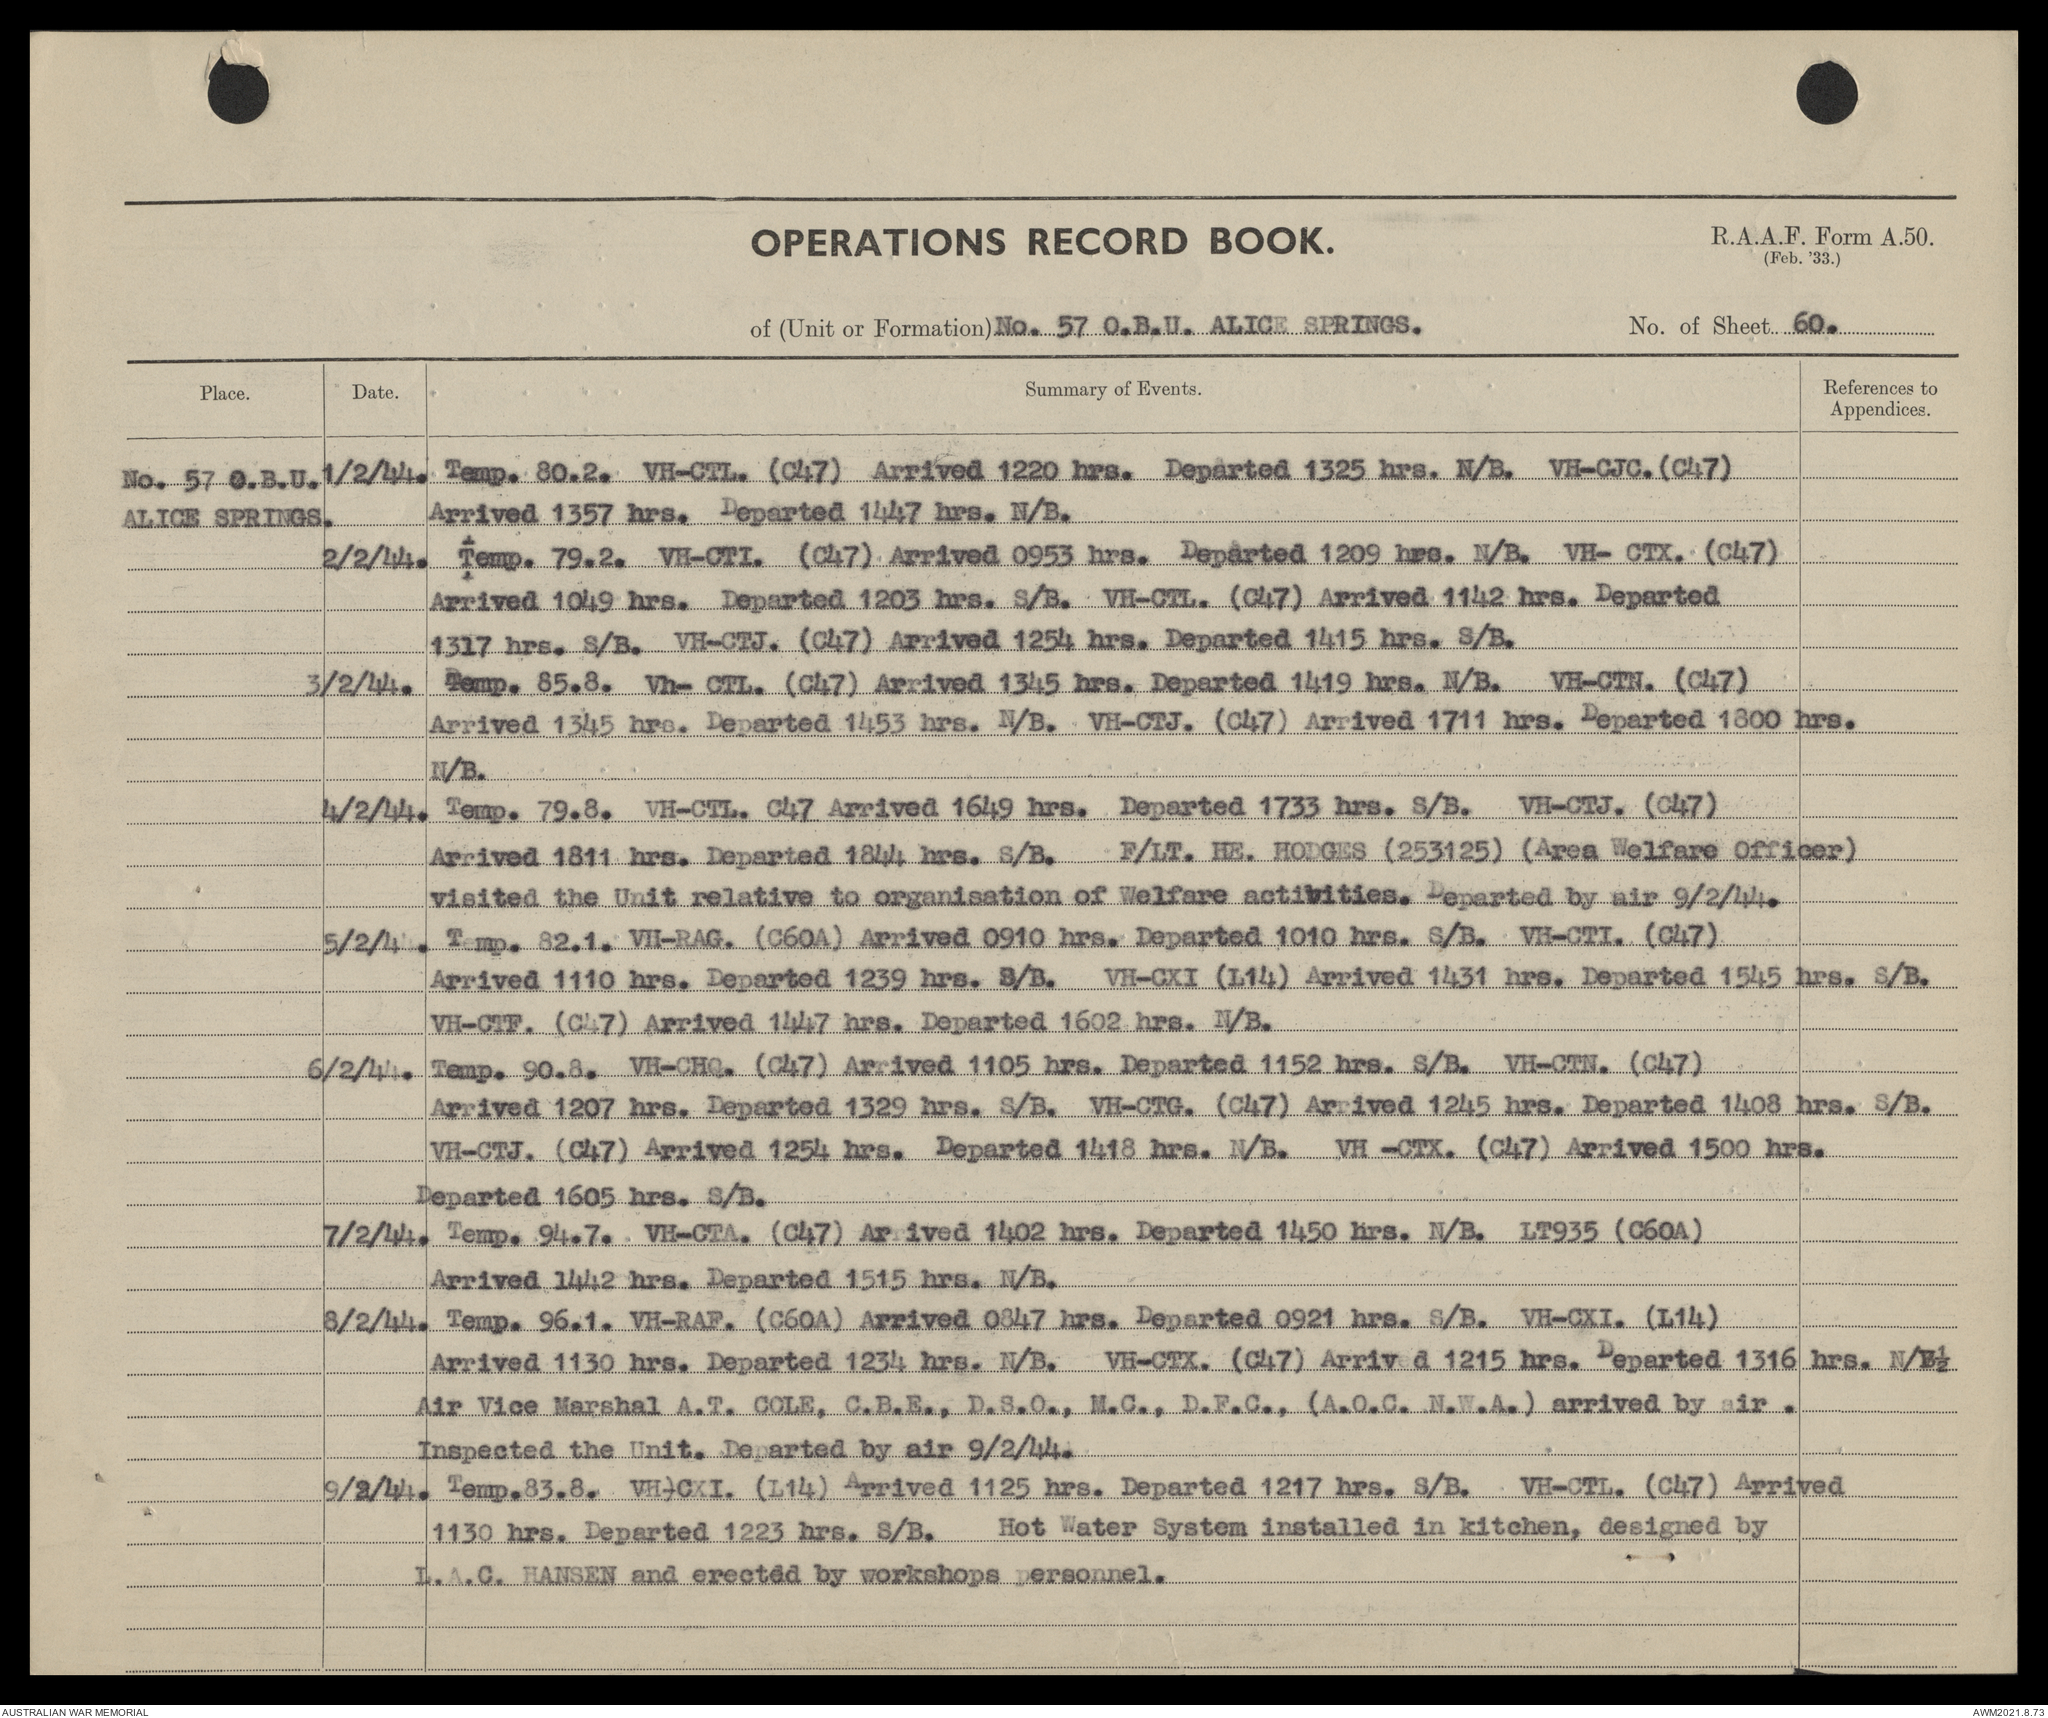 OPERATIONS RECORD BOOK.
R.A.A.F. Form A.50.
(Feb. '33.)
of (Unit or Formation) No. 57 O.B.U. ALICE SPRINGS.
No. of Sheet 60.
Place. Date. Summary of Events. References to Appendices.
No. 57 O.B.U. 1/2/44. Temp. 80.2. VH-CTL. (C47) Arrived 1220 hrs. Departed 1325 hrs. N/B. VH-CJC.(C47)
ALICE SPRINGS. Arrived 1357 hrs. Departed 1447 hrs. N/B.
2/2/44. Temp. 79.2. VH-CTI. (C47) Arrived 0953 hrs. Departed 1209 hrs. N/B. VH- CTX. (C47)
Arrived 1049 hrs. Departed 1203 hrs. S/B. VH-CTL. (C47) Arrived 1142 hrs. Departed
1317 hrs. S/B. VH-CTJ. (C47) Arrived 1254 hrs. Departed 1415 hrs. S/B.
3/2/44. Temp. 85.8. Vh- CTL. (C47) Arrived 1345 hrs. Departed 1419 hrs. N/B. VH-CTN. (C47)
Arrived 1345 hrs. Departed 1453 hrs. N/B. VH-CTJ. (C47) Arrived 1711 hrs. Departed 1800 hrs.
N/B.
4/2/44. Temp. 79.8. VH-CTL. C47 Arrived 1649 hrs. Departed 1733 hrs. S/B. VH-CTJ. (C47)
Arrived 1811 hrs. Departed 1844 hrs. S/B. F/LT. HE. HODGES (253125) (Area Welfare Officer)
visited the Unit relative to organisation of Welfare activities. Departed by air 9/2/44.
5/2/44. Temp. 82.1. VH-RAG. (C60A) Arrived 0910 hrs. Departed 1010 hrs. S/B. VH-CTI. (C47)
Arrived 1110 hrs. Departed 1239 hrs. S/B. VH-CXI (L14) Arrived 1431 hrs. Departed 1545 hrs. S/B.
VH-CTF. (C47) Arrived 1447 hrs. Departed 1602 hrs. N/B.
6/2/44. Temp. 90.8. VH-CHG. (C47) Arrived 1105 hrs. Departed 1152 hrs. S/B. VH-CTN. (C47)
Arrived 1207 hrs. Departed 1329 hrs. S/B. VH-CTG. (C47) Arrived 1245 hrs. Departed 1408 hrs. S/B.
VH-CTJ. (C47) Arrived 1254 hrs. Departed 1418 hrs. N/B. VH -CTX. (C47) Arrived 1500 hrs.
Departed 1605 hrs. S/B.
7/2/44. Temp. 94.7. VH-CTA. (C47) Arrived 1402 hrs. Departed 1450 hrs. N/B. LT935 (C60A)
Arrived 1442 hrs. Departed 1515 hrs. N/B.
8/2/44. Temp. 96.1. VH-RAF. (C60A) Arrived 0847 hrs. Departed 0921 hrs. S/B. VH-CXI. (L14)
Arrived 1130 hrs. Departed 1234 hrs. N/B. VH-CTX. (C47) Arrived 1215 hrs. Departed 1316 hrs. N/B½
Air Vice Marshal A.T. COLE, C.B.E., D.S.O., M.C., D.F.C., (A.O.C. N.W.A.) arrived by air .
Inspected the Unit. Departed by air 9/2/44.
9/2/44. Temp.83.8. VH)CXI. (L14) Arrived 1125 hrs. Departed 1217 hrs. S/B. VH-CTL. (C47) Arrived
1130 hrs. Departed 1223 hrs. S/B. Hot Water System installed in kitchen, designed by
L.A.C. HANSEN and erected by workshops personnel.
AUSTRALIAN WAR MEMORIAL
AWM2021.8.73